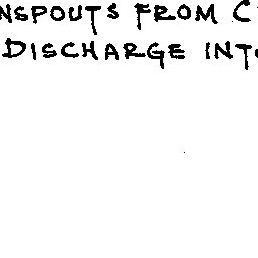 NSPOUTS FROM C
DISCHARGE INTO